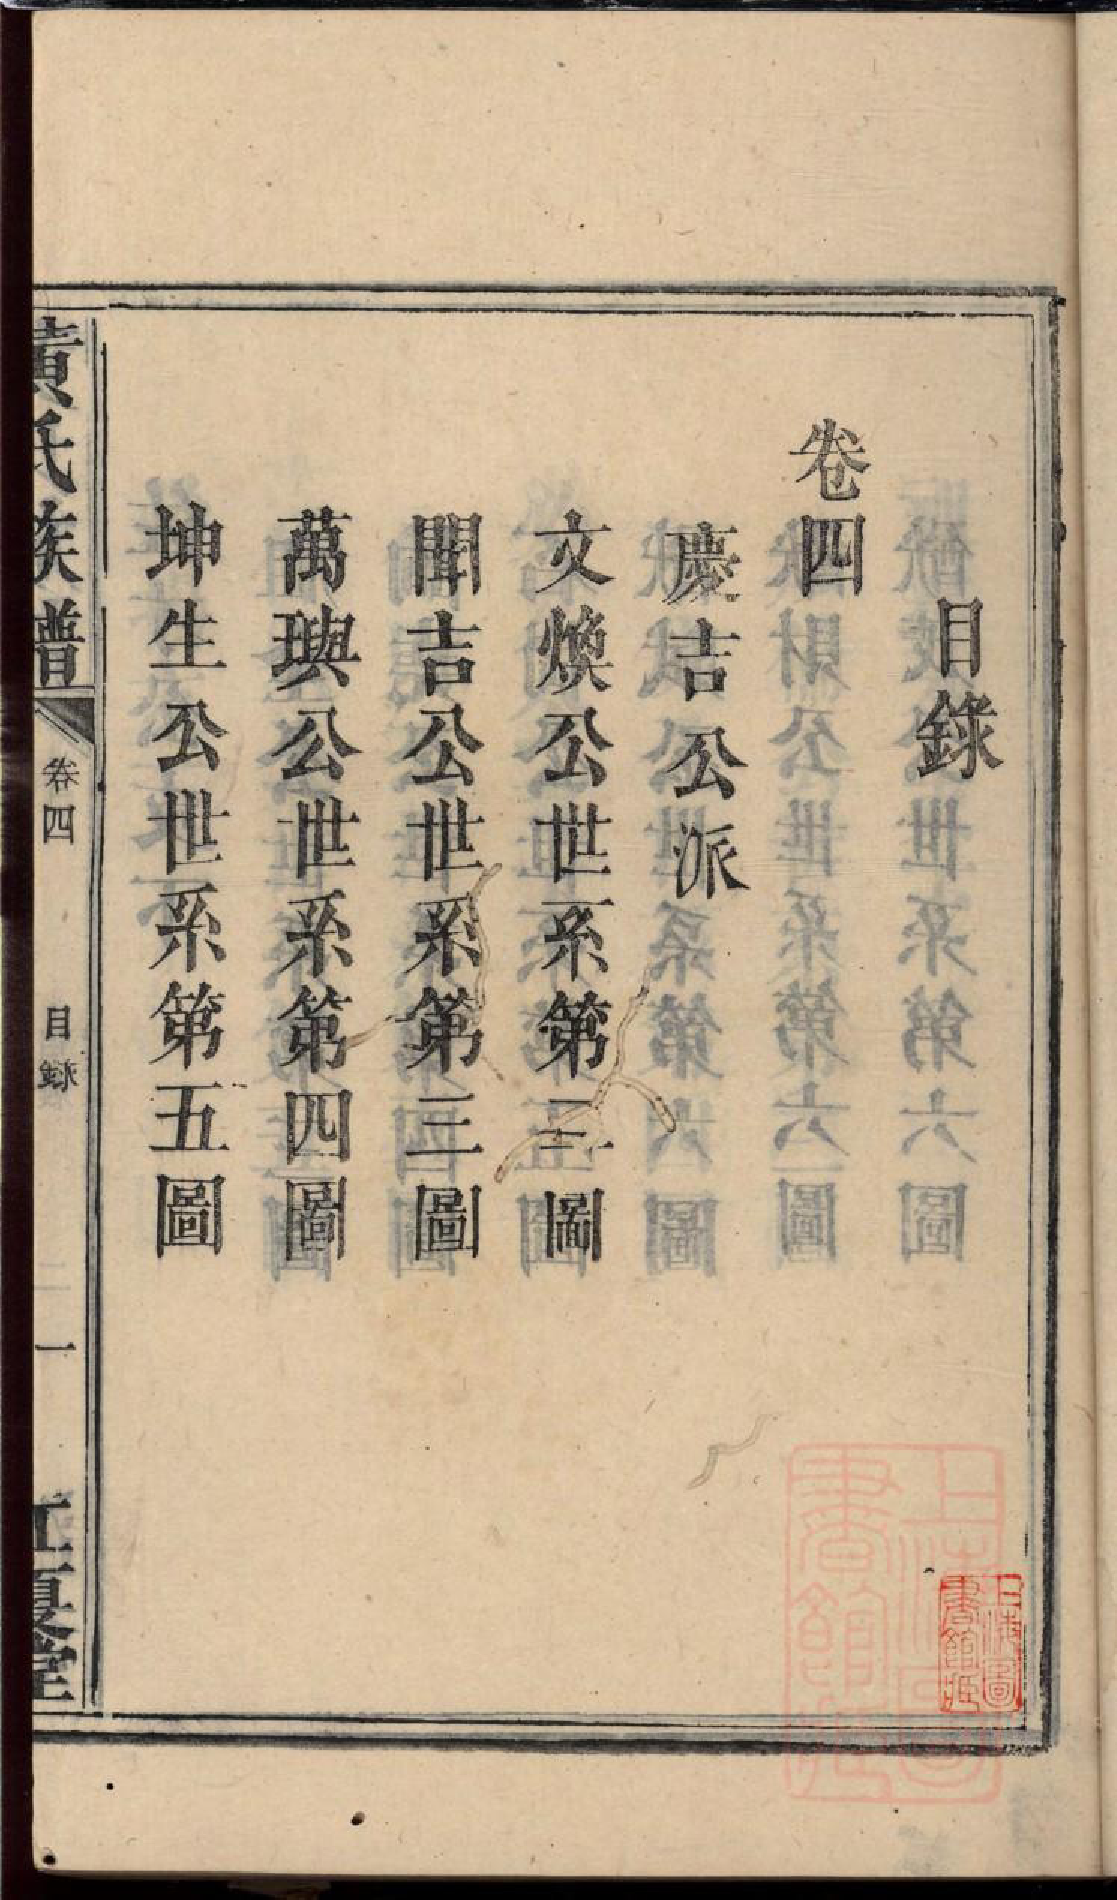 目錄
卷四
慶吉公派
文煥公世系第三圖
聞吉公世系第三圖
萬璵公世系第四圖
坤生公世系第五圖
黃氏族譜
卷四
目錄
一
江夏堂
上海圖書館藏